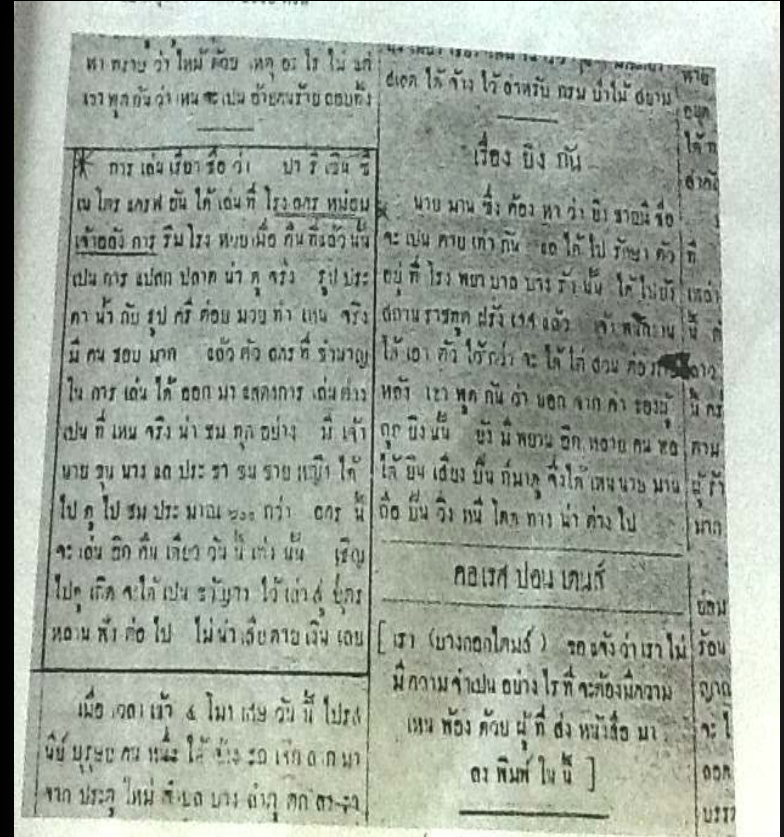 หา ทราบ ว่า ไหม้ ด้วย เหตุ อะ ไร ไม่ แต่
เขา พูด กัน ว่า เหน จะ เปน อ้ายคนร้าย ลอบทิ้ง
การ เล่น เรียก ชื่อ ว่า ปา ริ เซิน ซี
เน โตร แกรฟ อัน ได้ เล่น ที่ โรง ลคร หม่อม
เจ้าอลัง การ ริม โรง หวยเมื่อ คืน ที่แล้ว นั้น
เปน การ แปลก ปลาด น่า ดู จริง รูป ประ
ดา น้ำ กับ รูป ตรี ต่อย มวย ทำ เหน จริง
มี คน ชอบ มาก แล้ว ตัว ลคร ที่ ชำนาญ
ใน การ เล่น ได้ ออก มา แสดงการ เล่นต่าง
เปน ที่ เหน จริง น่า ชม ทุก อย่าง มี เจ้า
นาย ขุน นาง แล ประ ชา ชน ชาย หญิง ได้
ไป ดู ไป ชม ประ มาณ ๖๐๐ กว่า ลคร นี้
จะ เล่น อีก คืน เดียว วัน นี้ เท่า นั้น เชิญ
ไปดู เถิด จะได้ เปน ขวัญตา ไว้ เล่า สู่ บุตร
หลาน ฟัง ต่อ ไป ไม่ น่า เสียดาย เงิน เลย
เมื่อ เวลา เช้า ๔ โมง เศษ วัน นี้ ไปรส
นีย์ บุรุษย คน หนึ่ง ได้
จาก ประตู ใหม่ ตำบล บาง ลำภู ตก
ได้ จ้าง ไว้ สำหรับ กรม ป่าไม้ สยาม
เรื่อง ยิง กัน
นาย มาน ซึ่ง ต้อง หา ว่า ยิง ชายมี ชื่อ
จะ เปน ตาย เท่า กัน แล ได้ ไป รักษา ตัว
อยู่ ที่ โรง พยา บาล บาง รัก นั้น ได้ ไปยัง
สถาน ราชทูต ฝรั่ง เศส แล้ว เจ้า พนักงาน
ได้ เอา ตัว ไว้กว่า จะ ได้ ไต่ สวน ต่อ
หลัง เขา พูด กัน ว่า นอก จาก คำ ของผู้
ถูก ยิง นั้น ยัง มี พยาน อีก หลาย คน พอ
ได้ ยิน เสียง ปืน ก็มาดู จึงได้ เหนนาย มาน
ถือ ปืน วิ่ง หนี โดด ทาง น่า ต่าง ไป
คอเรศ ปอน เดนส์
[ เรา (บางกอกไตมส์) ขอ แจ้ง ว่า เรา ไม่
มี ความ จำเปน อย่าง ไร ที่ จะต้องมีความ
เหน พ้อง ด้วย ผู้ ที่ ส่ง หนังสือ มา
ลง พิมพ์ ใน นี้ ]